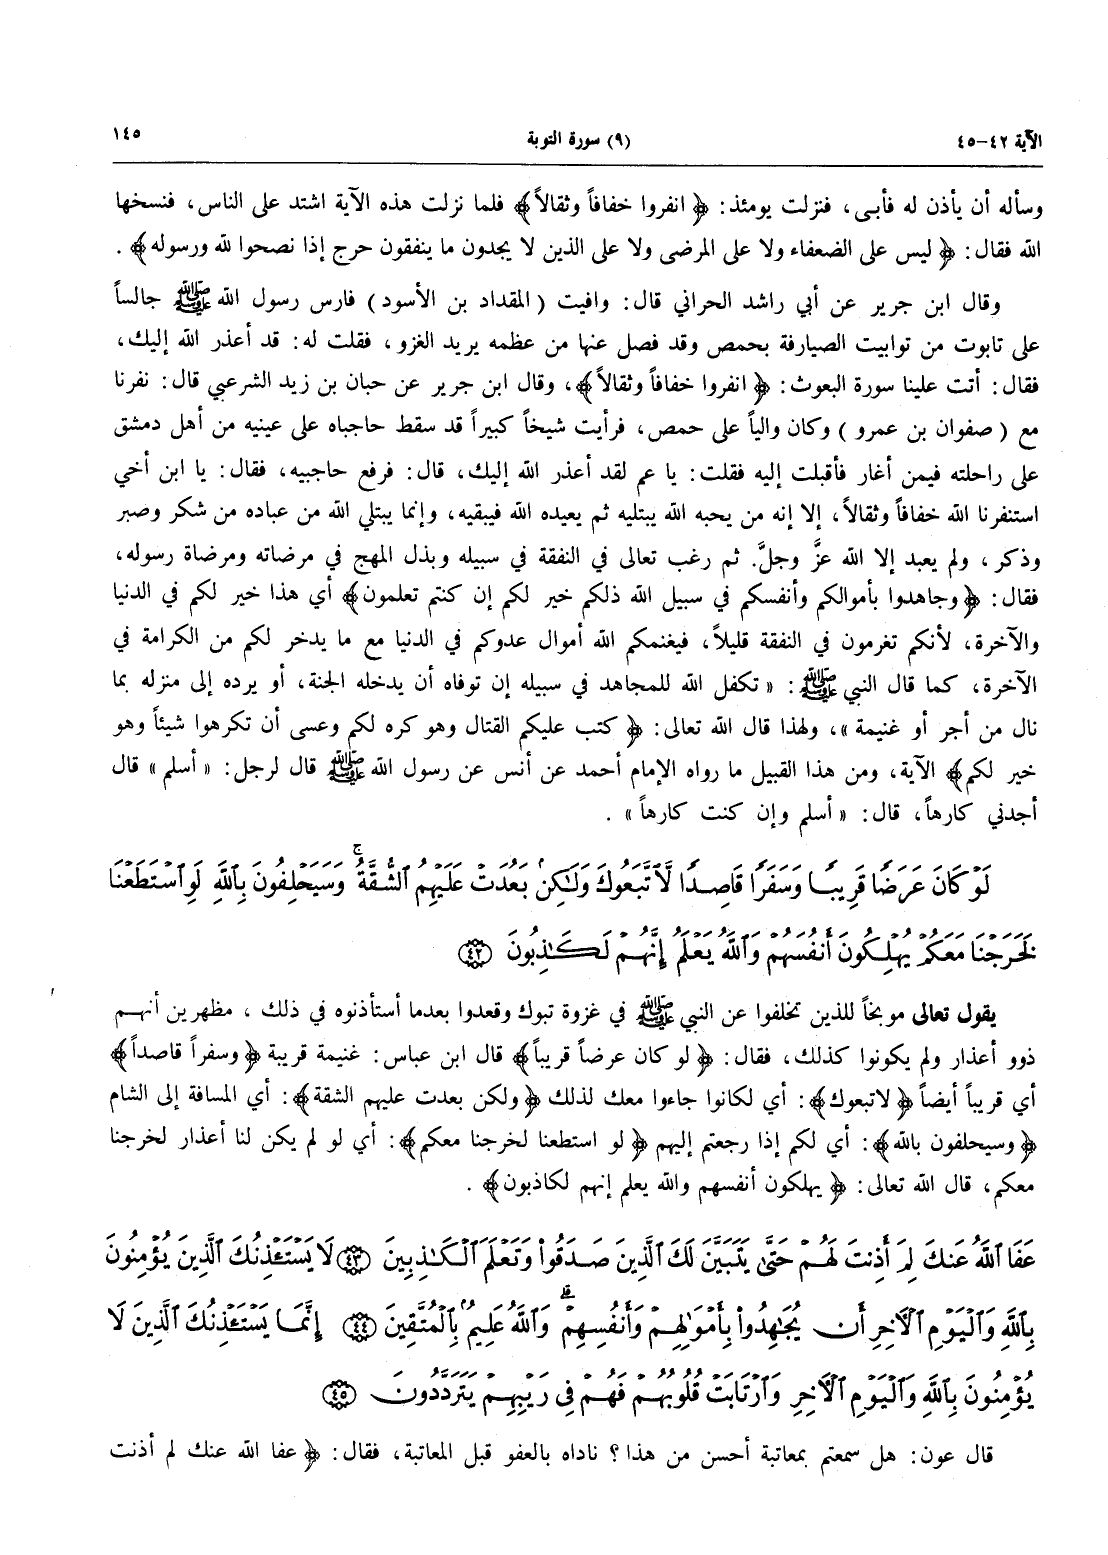 الآية ٤٢-٤٥ (٩) سورة التوبة ١٤٥
وسأله أن يأذن له فأبـى، فنزلت يومئذ: ﴿ انفروا خفافاً وثقالاً﴾ فلما نزلت هذه الآية اشتد على الناس، فنسخها
الله فقال: ﴿ ليس على الضعفاء ولا على المرضى ولا على الذين لا يجدون ما ينفقون حرج إذا نصحوا لله ورسوله﴾ .
وقال ابن جرير عن أبي راشد الحراني قال: وافيت ( المقداد بن الأسود ) فارس رسول الله ﷺ جالساً
على تابوت من توابيت الصيارفة بحمص وقد فصل عنها من عظمه يريد الغزو ، فقلت له: قد أعذر الله إليك،
فقال: أتت علينا سورة البعوث: ﴿ انفروا خفافاً وثقالاً﴾، وقال ابن جرير عن حبان بن زيد الشرعبي قال: نفرنا
مع ( صفوان بن عمرو ) وكان والياً على حمص، فرأيت شيخاً كبيراً قد سقط حاجباه على عينيه من أهل دمشق
على راحلته فيمن أغار فأقبلت إليه فقلت: يا عم لقد أعذر الله إليك، قال: فرفع حاجبيه، فقال: يا ابن أخي
استنفرنا الله خفافاً وثقالاً، إلا إنه من يحبه الله يبتليه ثم يعيده الله فيبقيه، وإنما يبتلي الله من عباده من شكر وصبر
وذكر ، ولم يعبد إلا الله عزَّ وجلَّ. ثم رغب تعالى في النفقة في سبيله وبذل المهج في مرضاته ومرضاة رسوله،
فقال: ﴿ وجاهدوا بأموالكم وأنفسكم في سبيل الله ذلكم خير لكم إن كنتم تعلمون﴾ أي هذا خير لكم في الدنيا
والآخرة، لأنكم تغرمون في النفقة قليلاً، فيغنمكم الله أموال عدوكم في الدنيا مع ما يدخر لكم من الكرامة في
الآخرة، كما قال النبي ﷺ: « تكفل الله للمجاهد في سبيله إن توفاه أن يدخله الجنة، أو يرده إلى منزله بما
نال من أجر أو غنيمة »، ولهذا قال الله تعالى: ﴿ كتب عليكم القتال وهو كره لكم وعسى أن تكرهوا شيئاً وهو
خير لكم﴾ الآية، ومن هذا القبيل ما رواه الإمام أحمد عن أنس عن رسول الله ﷺ قال لرجل: « أسلم » قال
أجدني كارهاً، قال: « أسلم وإن كنت كارهاً » .
لَوْ كَانَ عَرَضًا قَرِيبًا وَسَفَرًا قَاصِدًا لَّاتَّبَعُوكَ وَلَٰكِنۢ بَعُدَتْ عَلَيْهِمُ ٱلشُّقَّةُ ۚ وَسَيَحْلِفُونَ بِٱللَّهِ لَوِ ٱسْتَطَعْنَا
لَخَرَجْنَا مَعَكُمْ يُهْلِكُونَ أَنفُسَهُمْ وَٱللَّهُ يَعْلَمُ إِنَّهُمْ لَكَٰذِبُونَ ﴿٤٢﴾
يقول تعالى موبخاً للذين تخلفوا عن النبي ﷺ في غزوة تبوك وقعدوا بعدما أستأذنوه في ذلك ، مظهرين أنهـم
ذوو أعذار ولم يكونوا كذلك، فقال: ﴿ لو كان عرضاً قريباً﴾ قال ابن عباس: غنيمة قريبة ﴿ وسفراً قاصداً﴾
أي قريباً أيضاً ﴿ لاتبعوك﴾: أي لكانوا جاءوا معك لذلك ﴿ ولكن بعدت عليهم الشقة﴾: أي المسافة إلى الشام
﴿ وسيحلفون بالله﴾: أي لكم إذا رجعتم إليهم ﴿ لو استطعنا لخرجنا معكم﴾: أي لو لم يكن لنا أعذار لخرجنا
معكم، قال الله تعالى: ﴿ يهلكون أنفسهم والله يعلم إنهم لكاذبون﴾ .
عَفَا ٱللَّهُ عَنكَ لِمَ أَذِنتَ لَهُمْ حَتَّىٰ يَتَبَيَّنَ لَكَ ٱلَّذِينَ صَدَقُوا۟ وَتَعْلَمَ ٱلْكَٰذِبِينَ ﴿٤٣﴾ لَا يَسْتَـْٔذِنُكَ ٱلَّذِينَ يُؤْمِنُونَ
بِٱللَّهِ وَٱلْيَوْمِ ٱلْأٓخِرِ أَن يُجَٰهِدُوا۟ بِأَمْوَٰلِهِمْ وَأَنفُسِهِمْ ۗ وَٱللَّهُ عَلِيمٌۢ بِٱلْمُتَّقِينَ ﴿٤٤﴾ إِنَّمَا يَسْتَـْٔذِنُكَ ٱلَّذِينَ لَا
يُؤْمِنُونَ بِٱللَّهِ وَٱلْيَوْمِ ٱلْأٓخِرِ وَٱرْتَابَتْ قُلُوبُهُمْ فَهُمْ فِى رَيْبِهِمْ يَتَرَدَّدُونَ ﴿٤٥﴾
قال عون: هل سمعتم بمعاتبة أحسن من هذا ؟ ناداه بالعفو قبل المعاتبة، فقال: ﴿ عفا الله عنك لم أذنت